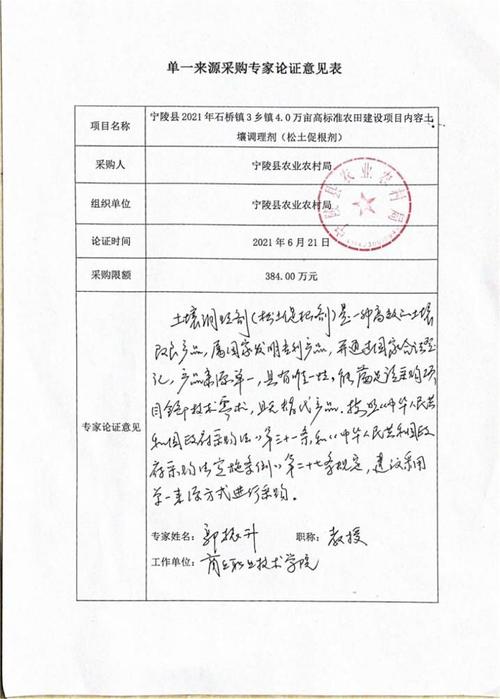 单一来源采购专家论证意见表
项目名称
宁陵县2021年石桥镇3乡镇4.0万亩高标准农田建设项目内容土
壤调理剂（松土促根剂）
采购人
宁陵县农业农村局
组织单位
宁陵县农业农村局
宁陵县农业农村局
论证时间
2021年6月21日
采购限额
384.00万元
专家论证意见
土壤调理剂（松土促根剂）是一种高效的土壤
改良产品，属国家发明专利产品，并通过国家合法登
记，产品来源单一，具有唯一性，能满足该采购项
目全部技术需求，且无替代产品。按照《中华人民共
和国政府采购法》第三十一条，和《中华人民共和国政
府采购法实施条例》第二十七条规定，建议采用
单一来源方式进行采购。
专家姓名：郭振升 职称：教授
工作单位：商丘职业技术学院